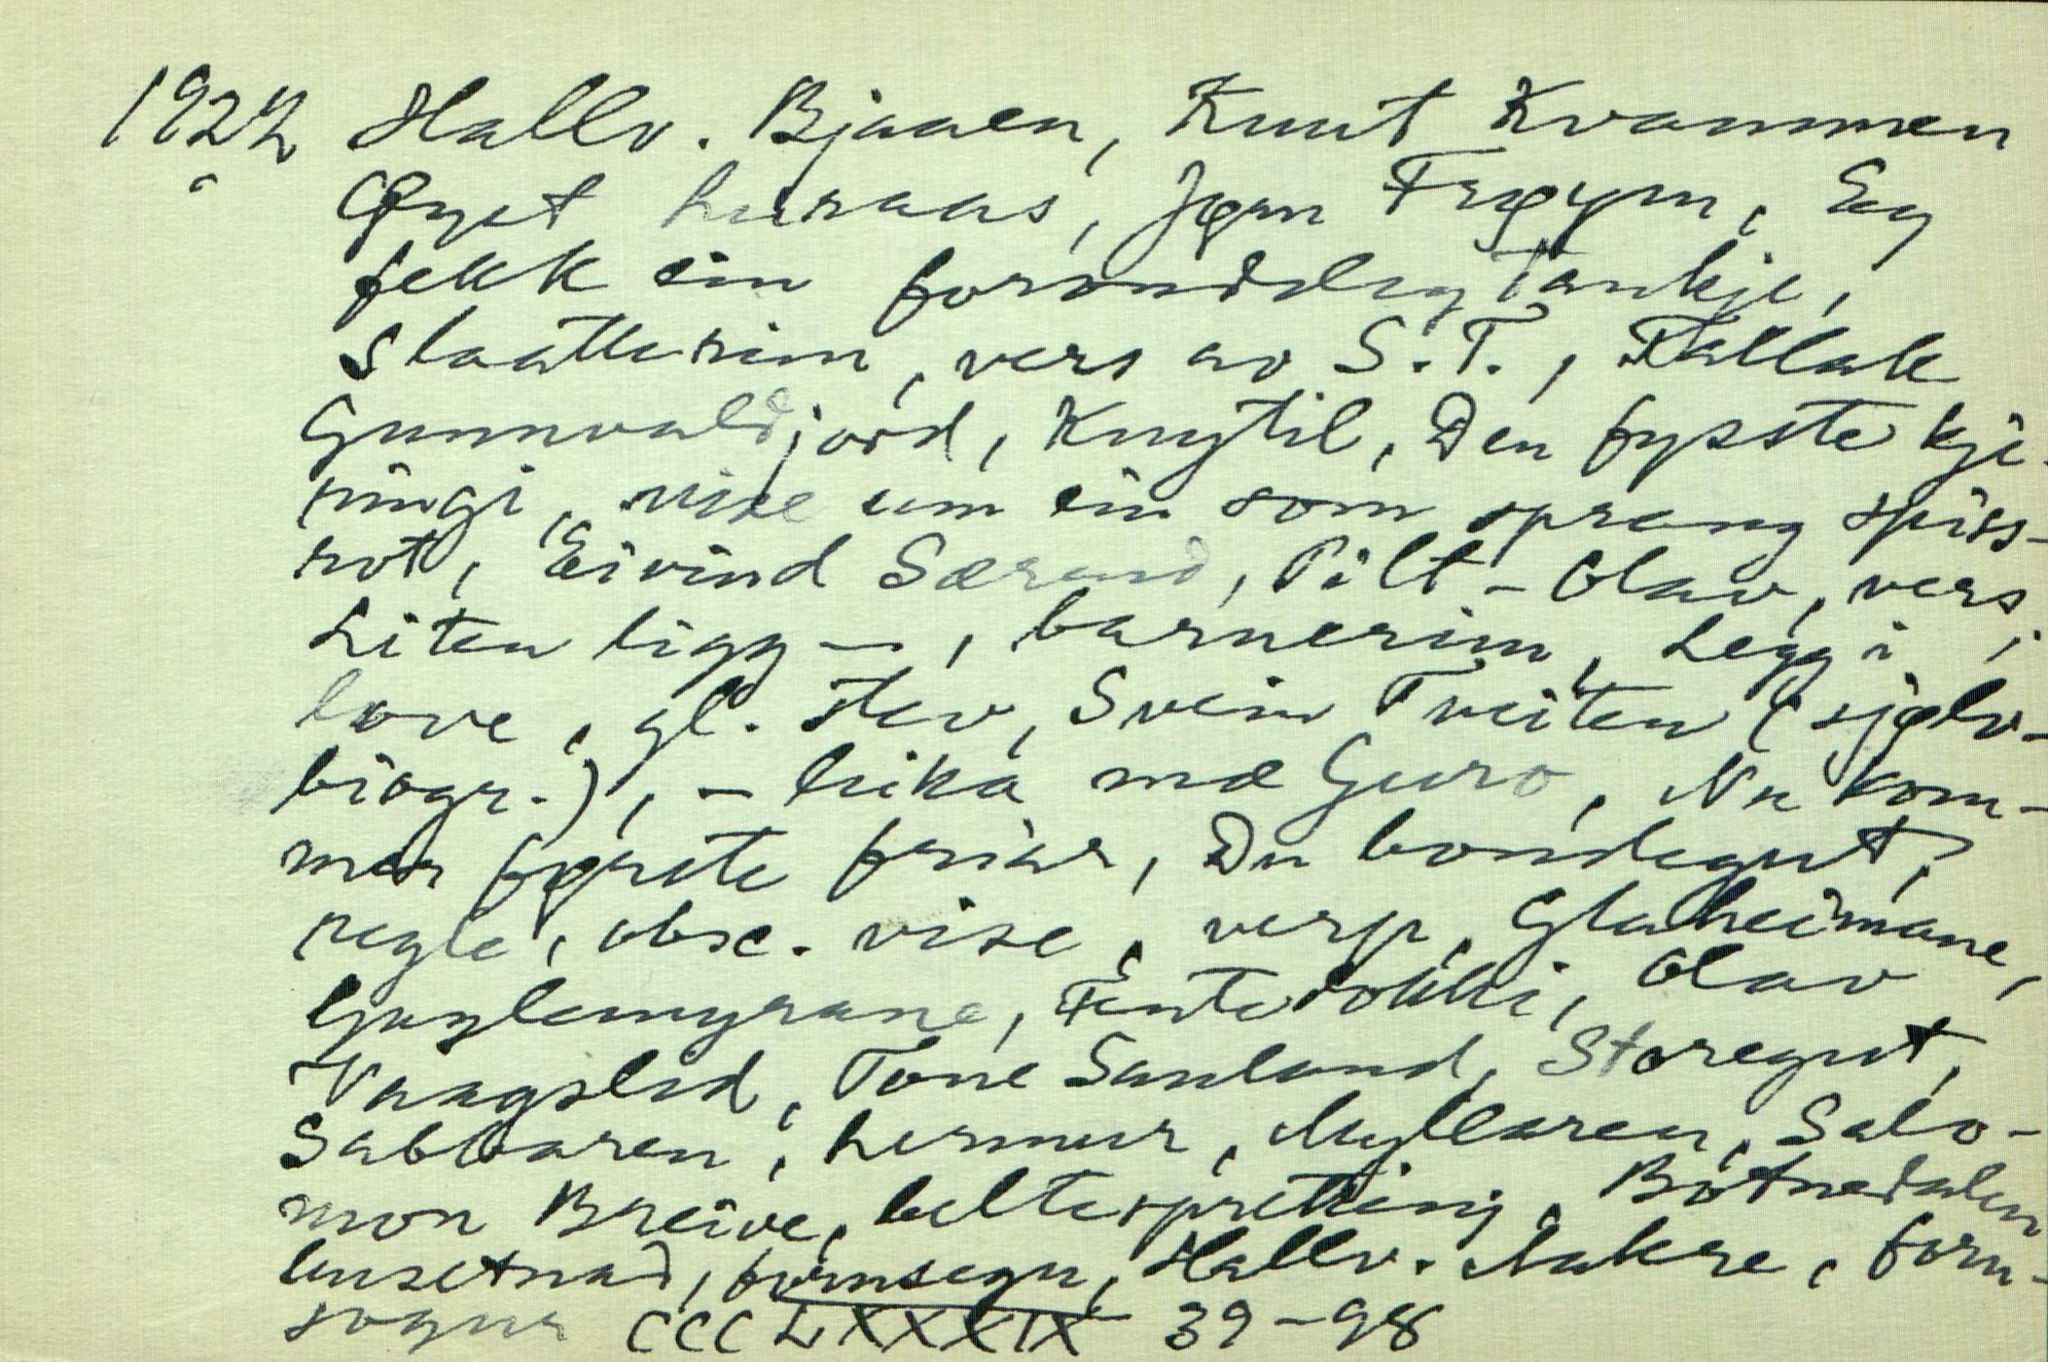 1922 Hallv. Bjaaen, Knut Kvammen
Øyst Luraas, Jørn Frøym, Eg
fekk ein forunddleg Tankje,
slaatterim, vers av S.T., Tallak
Gunnvaldjord, Knytil, Den fysste kje-
ringi, vise um ein som sprang spiss-
rot, Eivind Særend, Pilt-Olav, vers,
Liten ligg –, barnerim, Legg i
love, gl. stev, Svein Tveiten (sjølv-
biogr.), – leika mæ Guro, Nu kom-
mer fyrste friar, Du bondegut,
regle, obsc. vise, versp, Glaheimane,
Guglemyrane, Fentedokki, Olav
Vaagslid, Tone Sauland, Storegut,
Sabbaren, Lermur, Myllaren, Salo-
mon Breive, beltespretting, Bøtnedalen
busetnad, fornsegn, Hallv. Aakre, forn-
sogur CCCLXXXIX 39-98